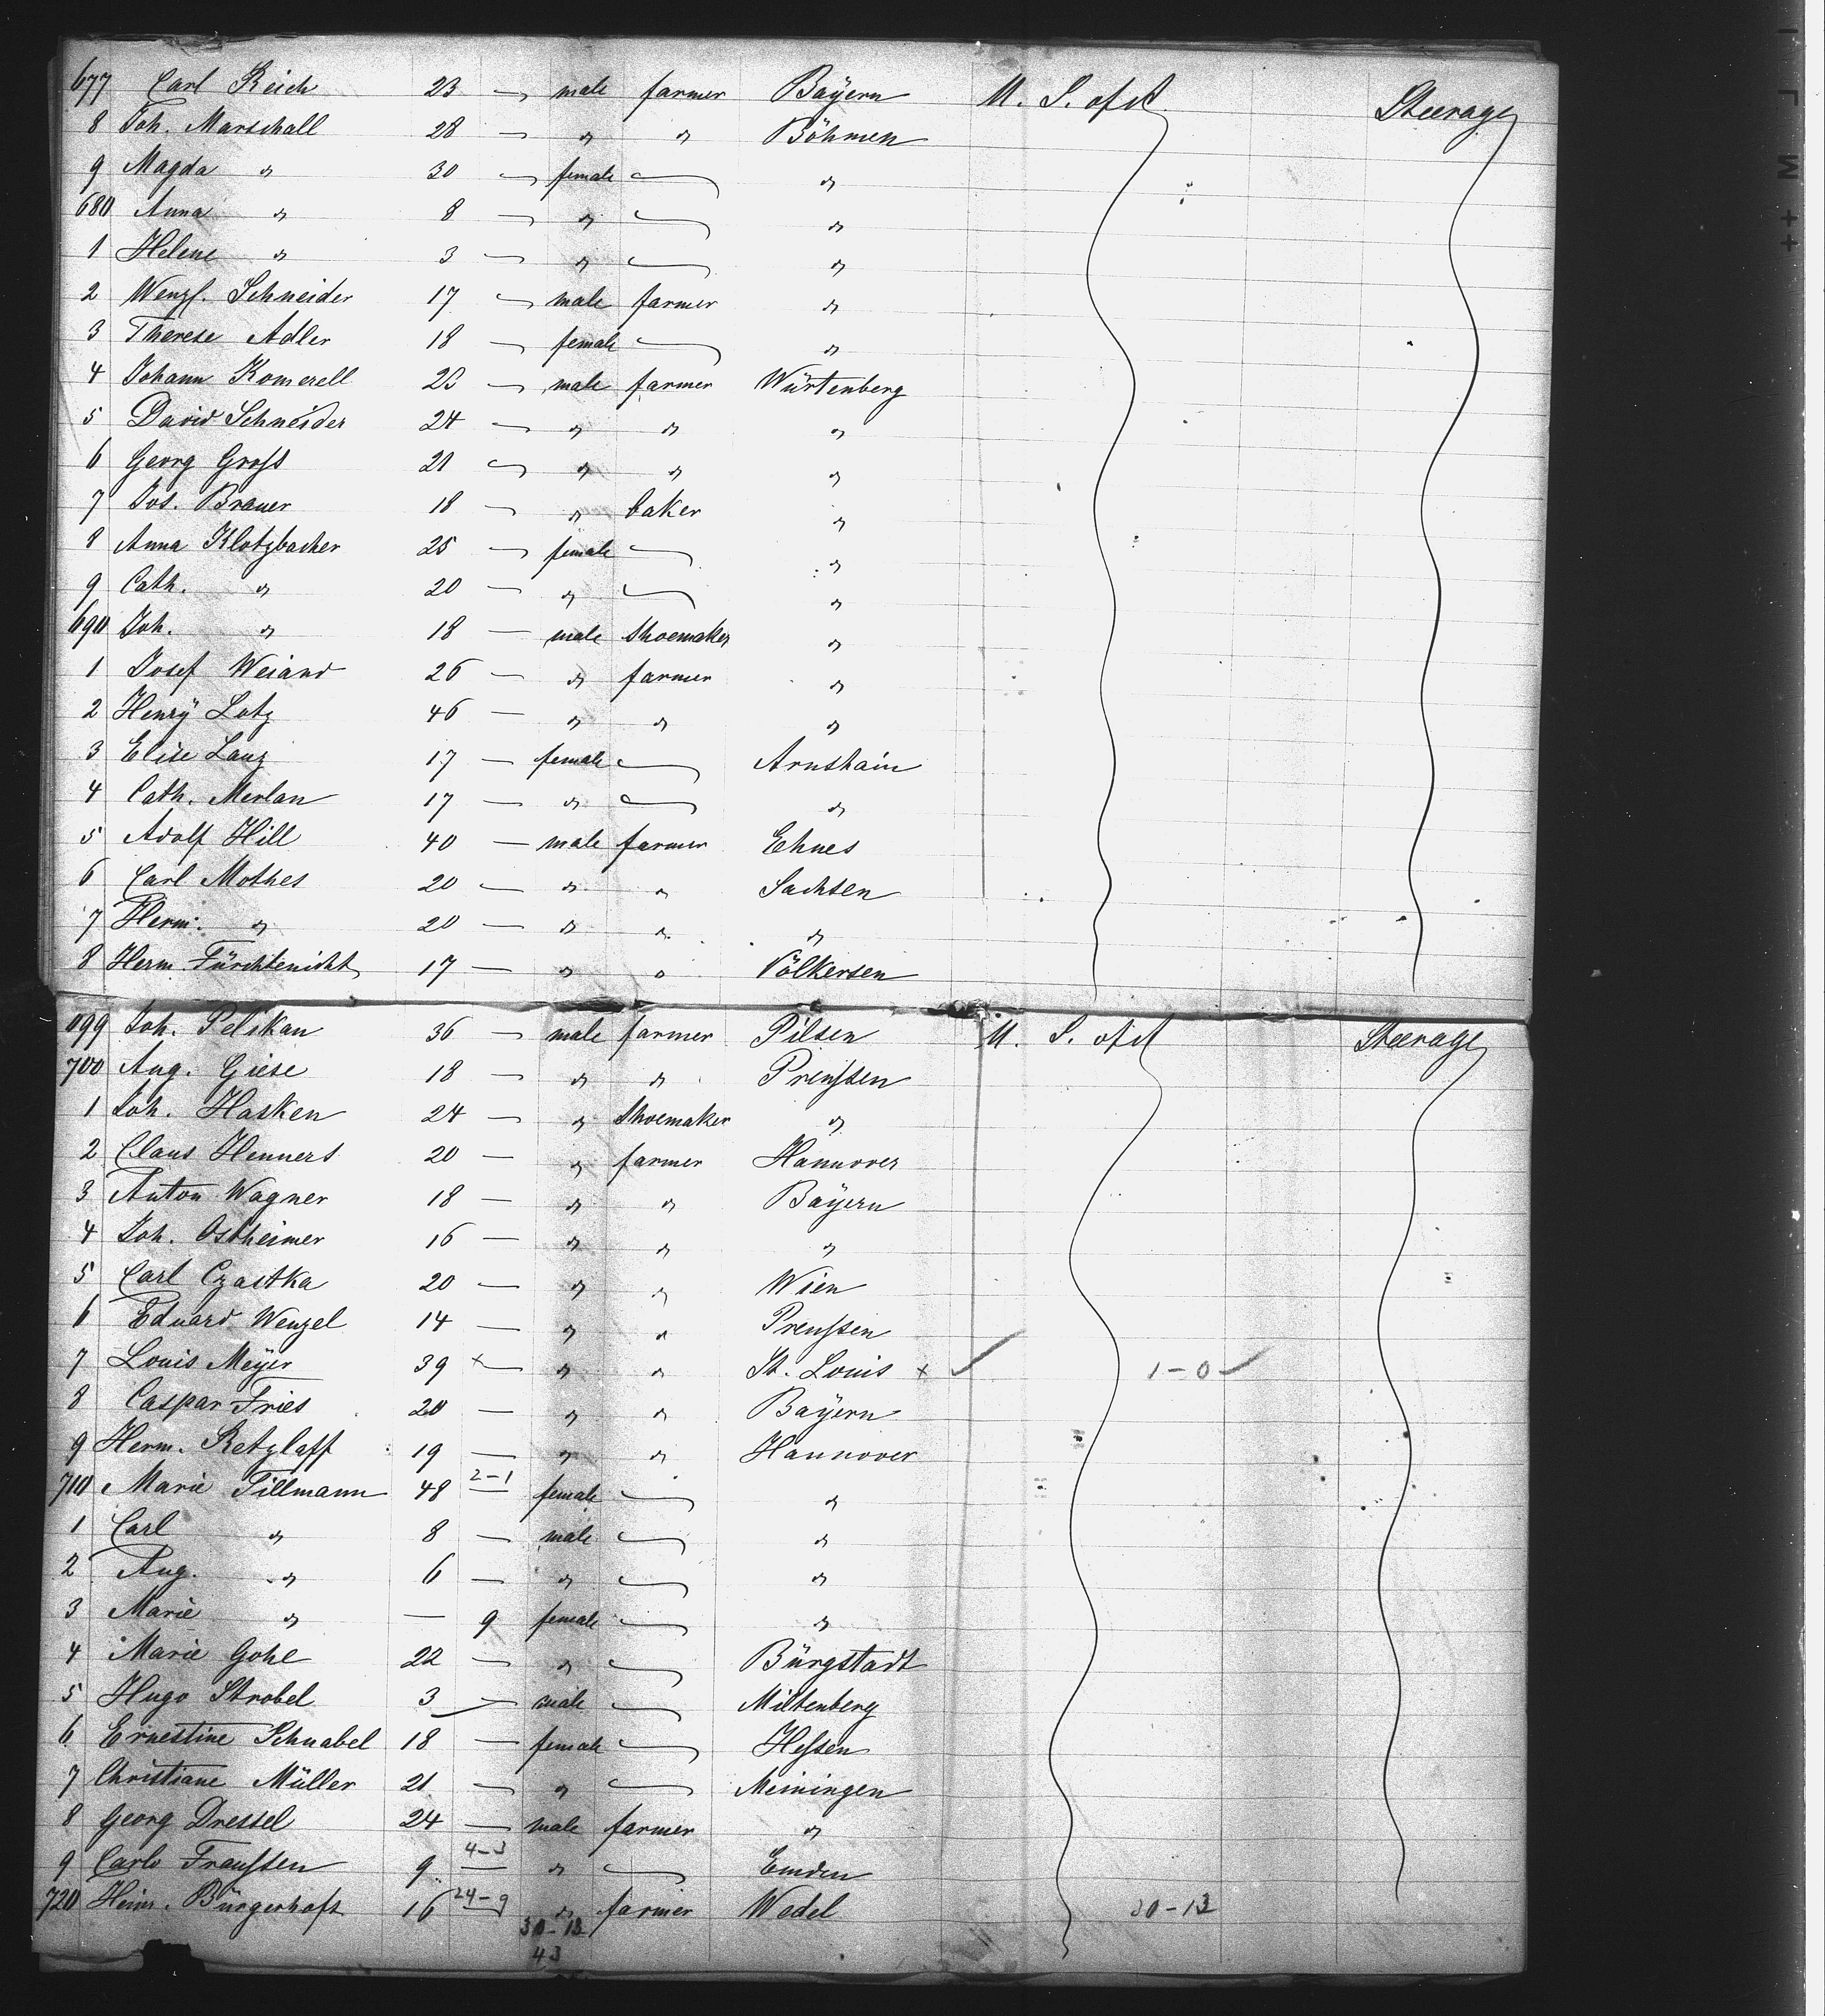 677 Carl Reich 23 — male farmer Bayern U. S. of A. Steerage
8 Joh. Marschall 28 — " " Böhmen
9 Magda " 30 — female — "
680 Anna " 8 — " — "
1 Helene " 3 — " — "
2 Wenzl. Schneider 17 — male farmer "
3 Therese Adler 18 — female — "
4 Johann Komerell 23 — male farmer Würtenberg
5 David Schneider 24 — " " "
6 Georg Groſs 21 — " " "
7 Jos. Brauer 18 — " baker "
8 Anna Klotzbacher 25 — female — "
9 Cath. " 20 — " — "
690 Joh. " 18 — male Shoemaker "
1 Josef Weiand 26 — " farmer "
2 Henrÿ Lotz 46 — " " "
3 Elise Lanz 17 — female — Arnshain
4 Cath. Merlan 17 — " — "
5 Adolf Hill 40 — male farmer Ehnes
6 Carl Mothes 20 — " " Sachsen
7 Herm. " 20 — " " "
8 Herm. Fürchtenicht 17 — " " Völkersen
699 Joh. Pelikan 36 — male farmer Pilsen U. S. of A Steerage
700 Aug. Giese 18 — " " Preuſsen
1 Joh. Hasken 24 — " Shoemaker "
2 Claus Henners 20 — " farmer Hannover
3 Anton Wagner 18 — " " Bayern
4 Joh. Ostheimer 16 — " " "
5 Carl Czastka 20 — " " Wien
6 Eduard Wenzel 14 — " " Preuſsen
7 Louis Meÿer 39 x — " " St. Louis x ✓ 1-0 ✓
8 Caspar Fries 20 — " " Bayern
9 Herm. Retzlaff 19 — " " Hannover
710 Marie Tillmann 48 2-1 — female — "
1 Carl " 8 — male — "
2 Aug. " 6 — " — "
3 Marie " — 9 female — "
4 Marie Gohl 22 — " — Bürgstadt
5 Hugo Strobel 3 — male — Miltenberg
6 Ernestine Schnabel 18 — female — Heſsen
7 Christiane Müller 21 — " — Meiningen
8 Georg Dressel 24 — male farmer "
9 Carls Franſsen 9 4-3 — " — Emden
720 Heinr. Bürgerhoff 16 24-9 — " farmer Wedel 30-13
30-13
43